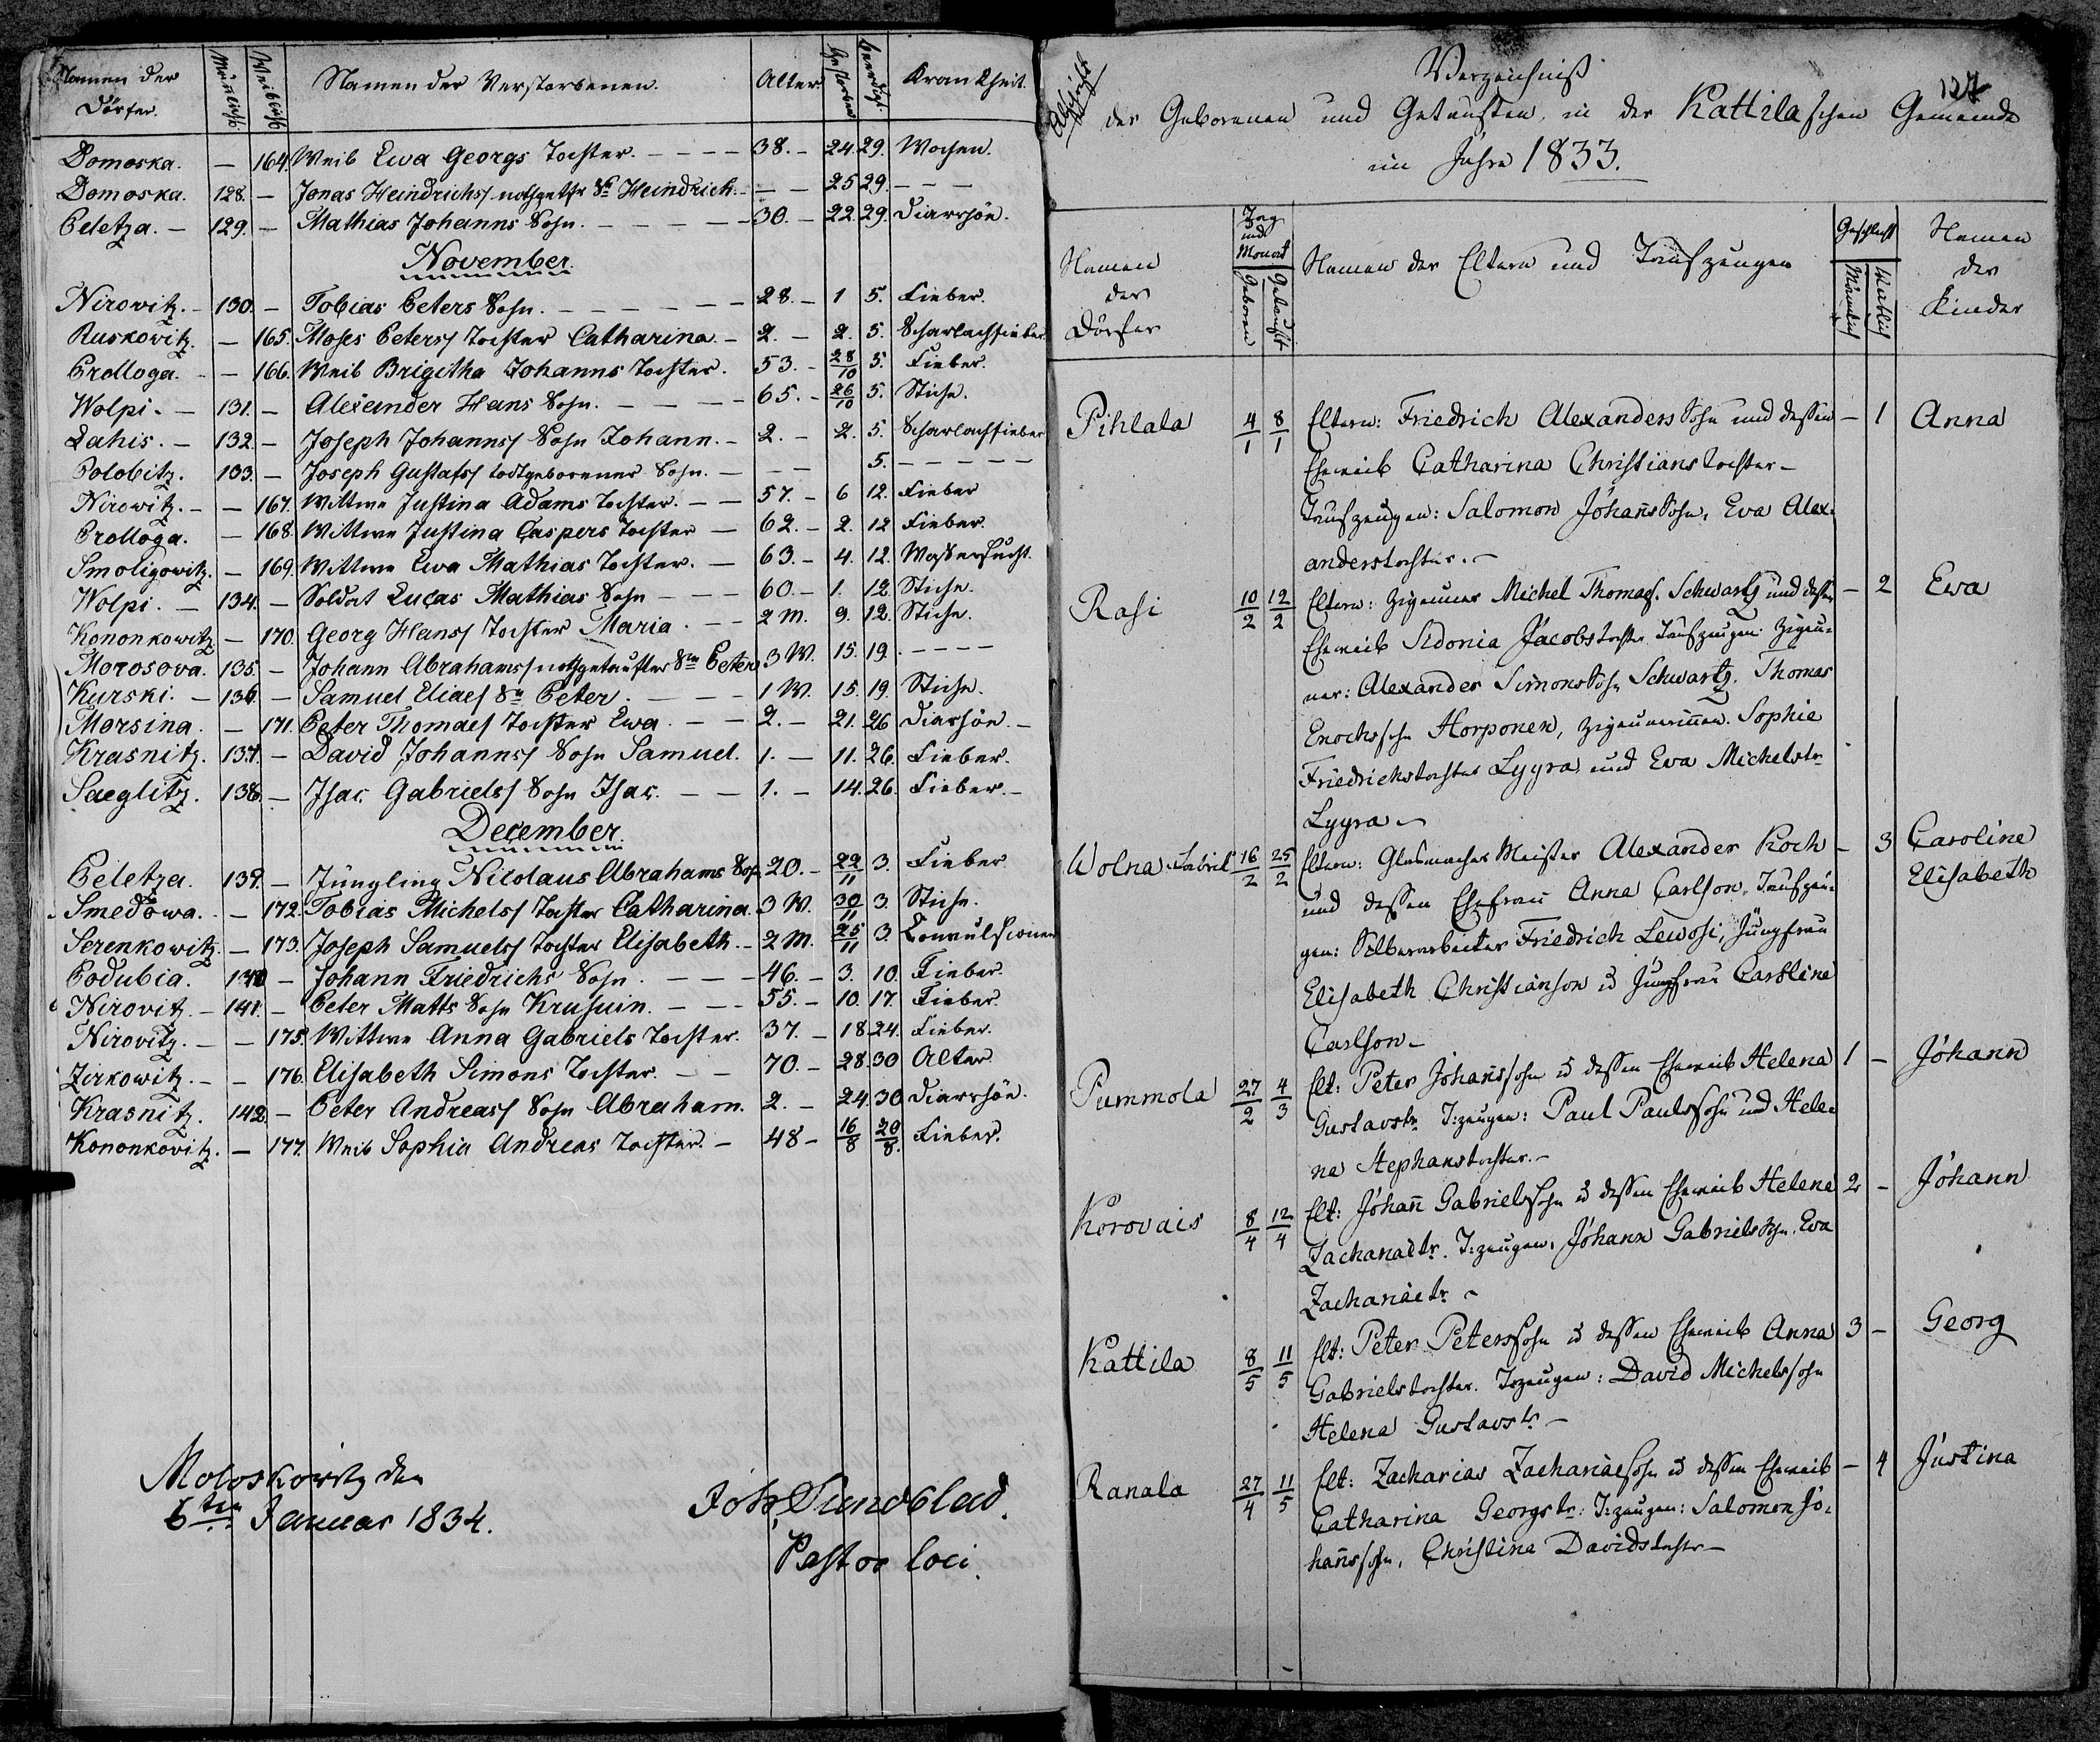 Namen der
Dörfer.
Männlich
Weiblich
Namen der Verstorbenen.
Alter
Gestorben
Beerdigt
Krankheit.
Domoska. — 164. Weib Ewa Georgs Tochter. — — — 38. — 24. 29. Wochen.
Domoska. 128. — Jonas Heindrichs/ nothgetfr Sn Heindrich. — — 25 29. — — —
Peletza. — 129. — Mathias Johanns Sohn. — — — — 30. — 22. 29. Diarrhöe.
November.
Nirovitz. — 130. — Tobias Peters Sohn. — — — — 28. — 1 5. Fieber.
Ruskowitz. — 165. Moses Peters/ Tochter Catharina. — 2. — 2. 5. Scharlachfieber
Prolloga. — 166. Weib Brigitha Johanns Tochter. 53. — 28/10 5. Fieber.
Wolpi. — 131. — Alexander Hans Sohn. — — — 65. — 26/10 5. Stiche.
Lahis. — 132. — Joseph Johanns/ Sohn Johann. — 2. — 2. 5. Scharlachfieber
Polobitz. 133. — Joseph Gustafs/ todtgeborener Sohn. — — — 5. — — — — —
Nirowitz. — — 167. Wittwe Justina Adams Tochter. — — 57. — 6 12. Fieber
Prolloga. — 168. Wittwe Justina Caspers Tochter — 62. — 2. 12 Fieber.
Smoligowitz. — 169. Wittwe Ewa Mathias Tochter. — 63. — 4. 12. Wassersucht.
Wolpi. — 134. — Soldat Lucas Mathias Sohn — — — 60. — 1. 12 Stiche.
Kononkowitz — 170. Georg Hans/ Tochter Maria. — — 2 M. 9. 12. Stiche.
Morosova. 135. — Johann Abrahams/ nothgetaufter Sn Peter 3 W. 15. 19. — — — —
Kurski. — 136. — Samuel Elias/ Sn Peter. — — — 1 W. 15. 19. Stiche.
Morsina. — 171. Peter Thomas/ Tochter Ewa. — — 2. — 21. 26 Diarhöe. —
Krasnitz. 137. — David Johanns/ Sohn Samuel. 1. — 11. 26. Fieber.
Saeglitz. 138. — Isac Gabriels/ Sohn Isac. — — 1. — 14. 26. Fieber. —
December.
Peletza. 139. — Jüngling Nicolaus Abrahams Sohn 20. — 22/11 3. Fieber
Smedowa. — 172. Tobias Michels/ Tochter Catharina. 3 W. 30/11 3. Stiche.
Serenkowitz. — 173. Joseph Samuels/ Tochter Elisabeth. — 2 M. 25/11 3. Convulsionen
Podubia. 140 — Johann Friedrichs Sohn. — — — 46. — 3. 10. Fieber.
Nirovitz. — 141. — Peter Matts Sohn Krusuin. — — — 55. — 10. 17. Fieber.
Nirovitz. — — 175. Wittwe Anna Gabriels Tochter. 37. — 18 24. Fieber.
Zirkowitz. — — 176. Elisabeth Simons Tochter. — — 70. — 28. 30 Alter.
Krasnitz. 142. — Peter Andreas/ Sohn Abraham. 2. — 24. 30 Diarrhöe.
Kononkovitz. — 177. Weib Sophia Andreas Tochter. — 48 — 16/8 20/8. Fieber.
Moloskowitz den
6ten Januar 1834.
Joh. Sundblad.
Pastor loci.
127
Verzeichniß
der Geborenen und Getauften, in der Kattilaschen Gemeinde
im Jahre 1833.
Namen
der
Dörfer
Tag
und
Monat
Geboren
Getauft
Namen der Eltern und Taufzeugen
Geschlecht
Männlich
Weiblich
Namen
der
Kinder
Pihlala 4/1 8/1 Eltern: Friedrich Alexanders Sohn und dessen — 1 Anna
Eheweib Catharina Christianstochter —
Taufzeugen: Salomon Johañs Sohn, Eva Alex-
anderstochter. —
Rasi 10/2 12/2 Eltern: Zigeuner Michel Thomas. Schwartz und dessen — 2 Ewa
Eheweib Sidonia Jacobstochter Taufzeugen: Zigeu-
ner: Alexander Simons Sohn Schwartz. Thomas
Enochssohn Horponen, Zigeunerinnen Sophie
Friedrichstochter Lygra und Eva Michelstr
Lygra —
Wolna Fabrick 16/2 25/2 Eltern: Glasmacher Meister Alexander Koch — 3 Caroline
und dessen Ehefrau Anna Carlson. Taufzeu- Elisabeth
gen: Silberarbeiter Friedrich Lewosi, Jungfrau
Elisabeth Christianson u Jungfrau Caroline
Carlson —
Pummola 27/2 4/3 Elt: Peter Johañssohn u dessen Eheweib Helena 1 — Johann
Gustavstr T:zeugen: Paul Paulssohn und Hele-
na Stephanstochter. —
Korovais 8/4 12/4 Elt: Johañ Gabrielssohn u dessen Eheweib Helena 2 — Johann
Zachariaetr. T:zeugen: Johann Gabrielssohn. Eva
Zachariaetr. —
Kattila 8/5 11/5 Elt: Peter Peterssohn u dessen Eheweib Anna 3 — Georg
Gabrielstochter. T:zeugen: David Michelssohn
Helena Gustavstr —
Ranala 27/4 11/5 Elt: Zacharias Zachariaesohn u dessen Eheweib — 4 Justina
Catharina Georgstr: T:zeugen: Salomon Jo-
hañssohn, Christina Davidstochter —